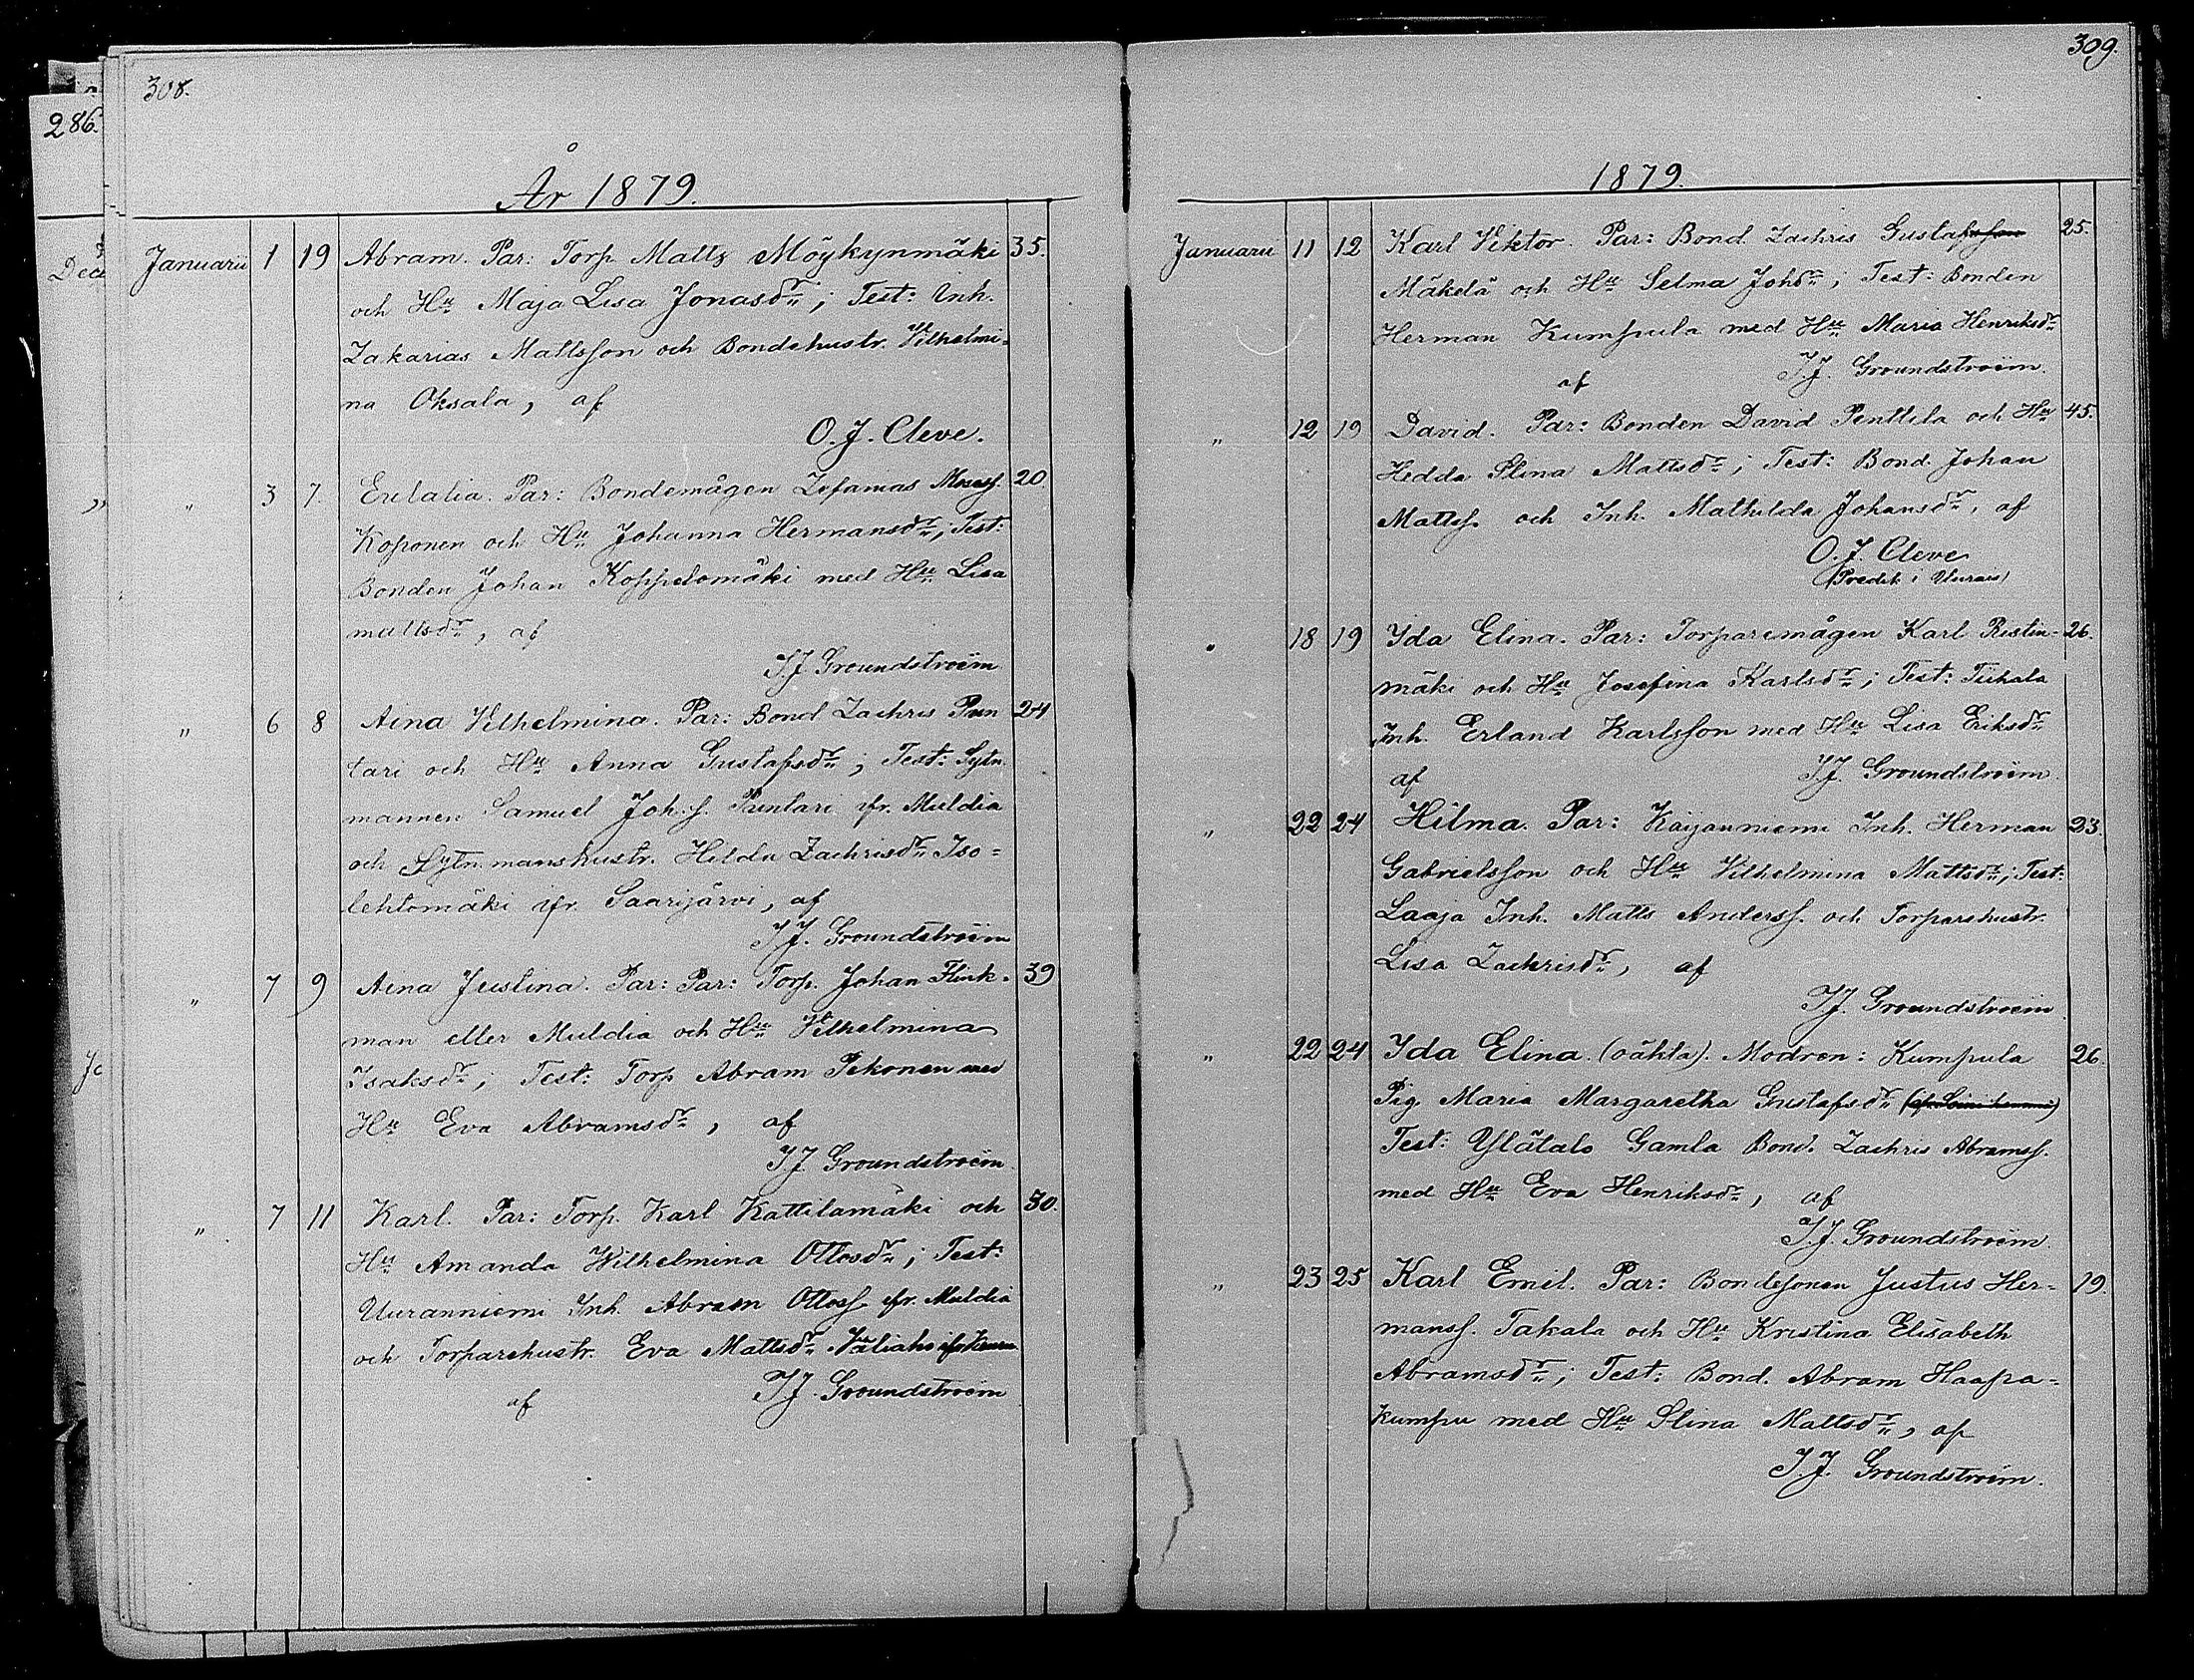 308.
286.
År 1879.
Dec
Januarii 1 19 Abram. Par: Torp Matts Möykynmäki 35.
och Hu Maja Lisa Jonasdr; Test: Inh.
Zakarias Mattsson och Bondehustr. Vilhelmi-
na Oksala, af
O. J. Cleve.
" 3 7. Eulalia. Par: Bondemågen Zefanias Mosess. 20
Koponen och Hu Johanna Hermansdr; Test:
Bonden Johan Koppelomäki med Hu Lisa
mattsdr, af
I.J. Groundstroëm
" 6 8 Aina Vilhelmina. Par: Bond Zachris Pun 24
tari och Hu Anna Gustafsdr; Test: Sytn.
mannen Samuel Joh. s. Puntari ifr. Muldia
och Sytn. manshustr. Hilda Zachrisdr Iso-
lehtomäki ifr. Saarijärvi, af
I.J. Groundstroëm
" 7 9 Aina Justina. Par: Par: Torp. Johan Flink- 39
man eller Muldia och Hu Vilhelmina
Isaksdr; Test: Torp Abram Pekonen med
Hu Eva Abramsdr, af
I.J. Groundstroëm
" 7 11 Karl. Par: Torp. Karl Kattilamäki och 30.
Hu Amanda Wilhelmina Ottosdr; Test:
Uuranniemi Inh. Abram Ottoss. ifr. Muldia
och Torparehustr. Eva Mattsdr
af I.J. Groundstroëm
309.
1879.
Januarii 11 12 Karl Viktor. Par: Bond. Zachris Gustafsson 25.
Mäkelä och Hu Selma Johdr; Test: Bonden
Herman Kumpula med Hu Maria Henriksdr
af I.J. Groundstroëm.
" 12 19 David. Par: Bonden David Penttila och Hu 45.
Hedda Stina Mattsdr; Test: Bond. Johan
Mattss. och Inh. Mathilda Johansdr, af
O. J. Cleve
(Predik i Uurais)
" 18 19 Ida Elina. Par: Torparemågen Karl Ristin- 26.
mäki och Hu Josefina Karlsdr; Test: Tiihala
Inh. Erland Karlsson med Hu Lisa Eriksdr
af I.J. Groundstroëm
" 22 24 Hilma. Par: Kaijanniemi Inh. Herman 23.
Gabrielsson och Hu Vilhelmina Mattsdr; Test:
Laaja Inh. Matts Anderss. och Torparehustr.
Lisa Zachrisdr, af
I.J. Groundstroëm
" 22 24 Ida Elina. (oäkta). Modren: Kumpula 26.
Pig. Maria Margaretha Gustafsdr
Test: Ylätalo Gamla Bond. Zachris Abramss.
med Hu Eva Henriksdr, af
I.J. Groundstroëm.
" 23 25 Karl Emil. Par: Bondesonen Justus Her- 19.
manss. Takala och Hu Kristina Elisabeth
Abramsdr; Test: Bond. Abram Haapa-
kumpu med Hu Stina Mattsdr, af
I.J. Groundstroëm.